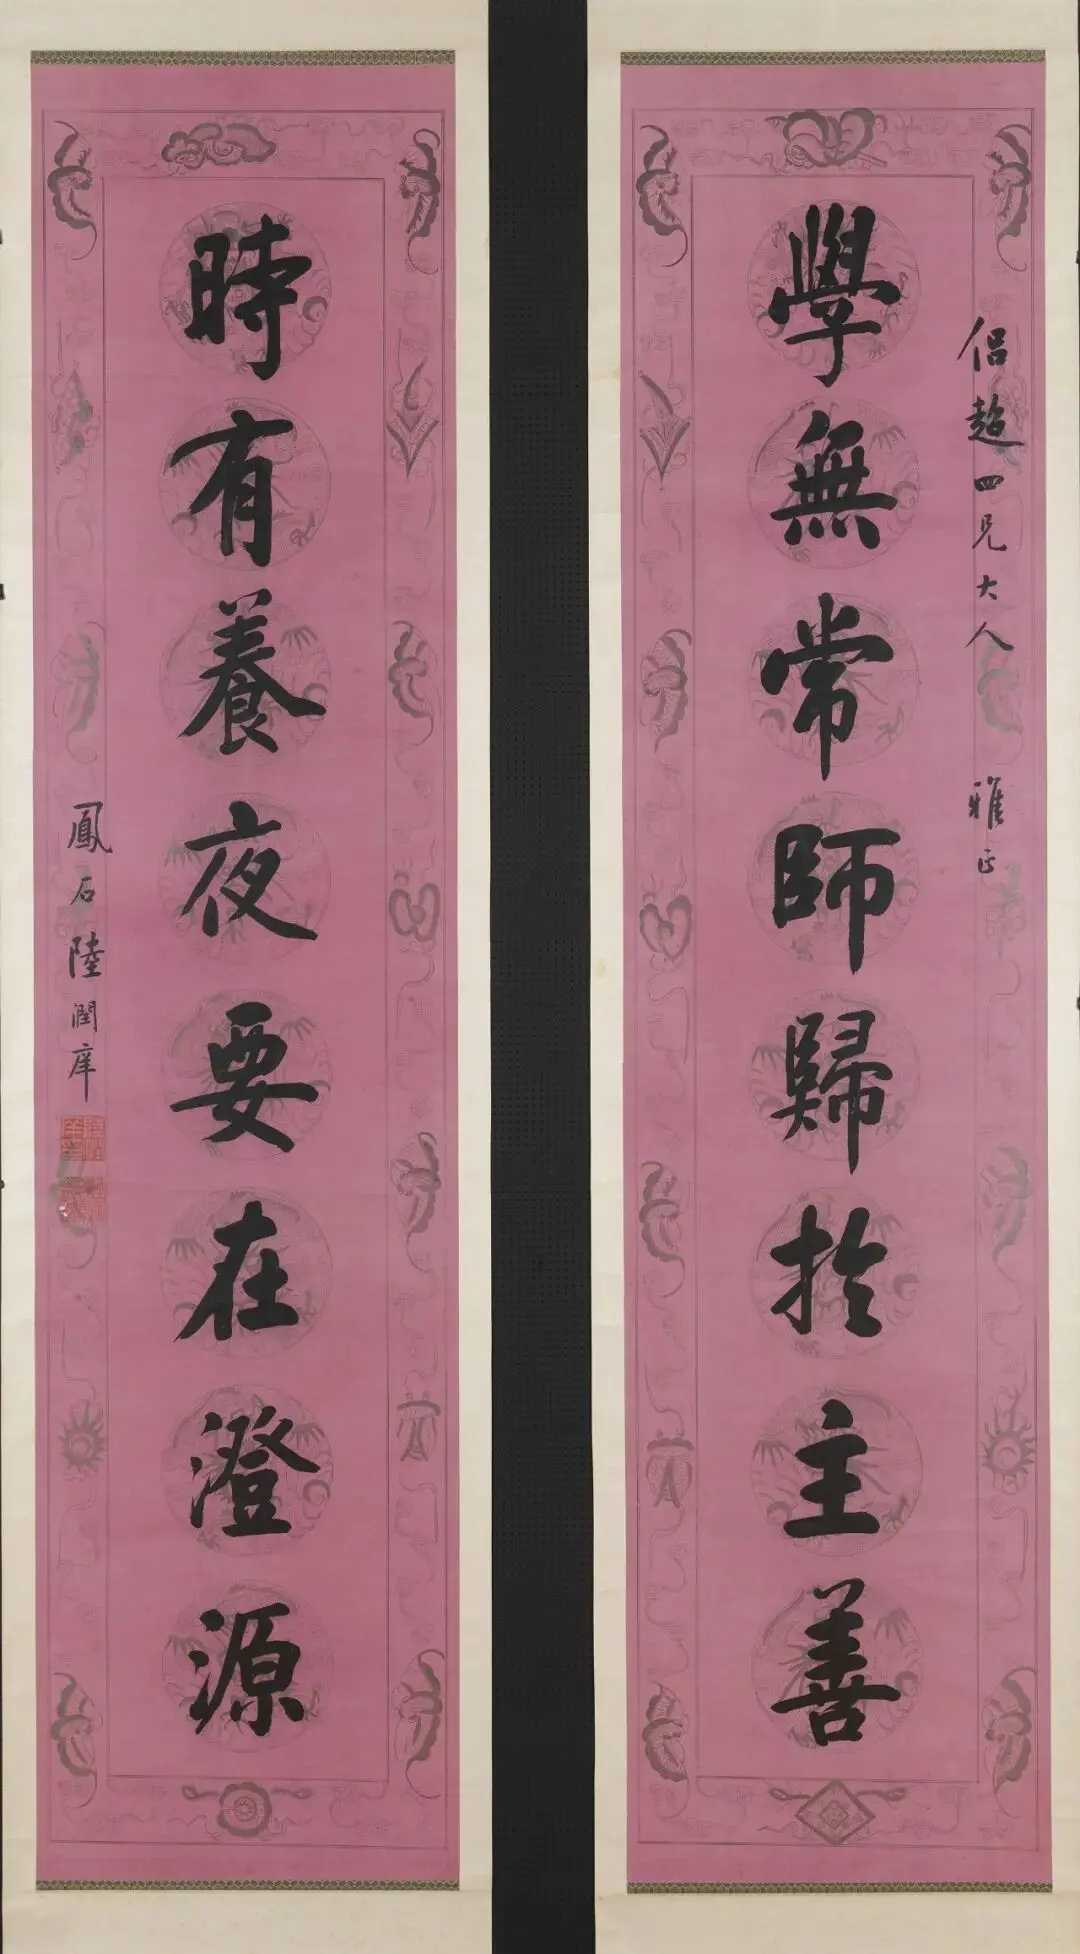 侶趙四兄大人 雅正
學無常師歸於主善
時有養夜要在澄源
鳳石陸潤庠